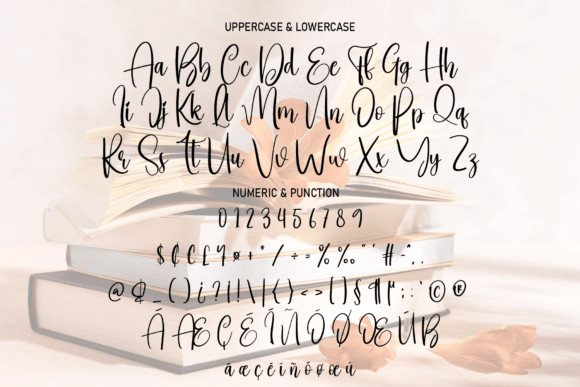 UPPERCASE & LOWERCASE
Aa Bb Cc Dd Ee Ff Gg Hh
Ii Jj Kk Ll Mm Nn Oo Pp Qq
Rr Ss Tt Uu Vv Ww Xx Yy Zz
NUMERIC & PUNCTION
0 1 2 3 4 5 6 7 8 9
$ ₵ € £ ¥ + * / ÷ = % ‰ " ' # - ^ , .
@ _ ( ) ¿ ? ! \ | { } < > [ ] § ¶ : ; ` © ®
Á Æ Ç É Í Ñ Ó Ø Œ Ú ß
á æ ç é í ñ ó ø œ ú